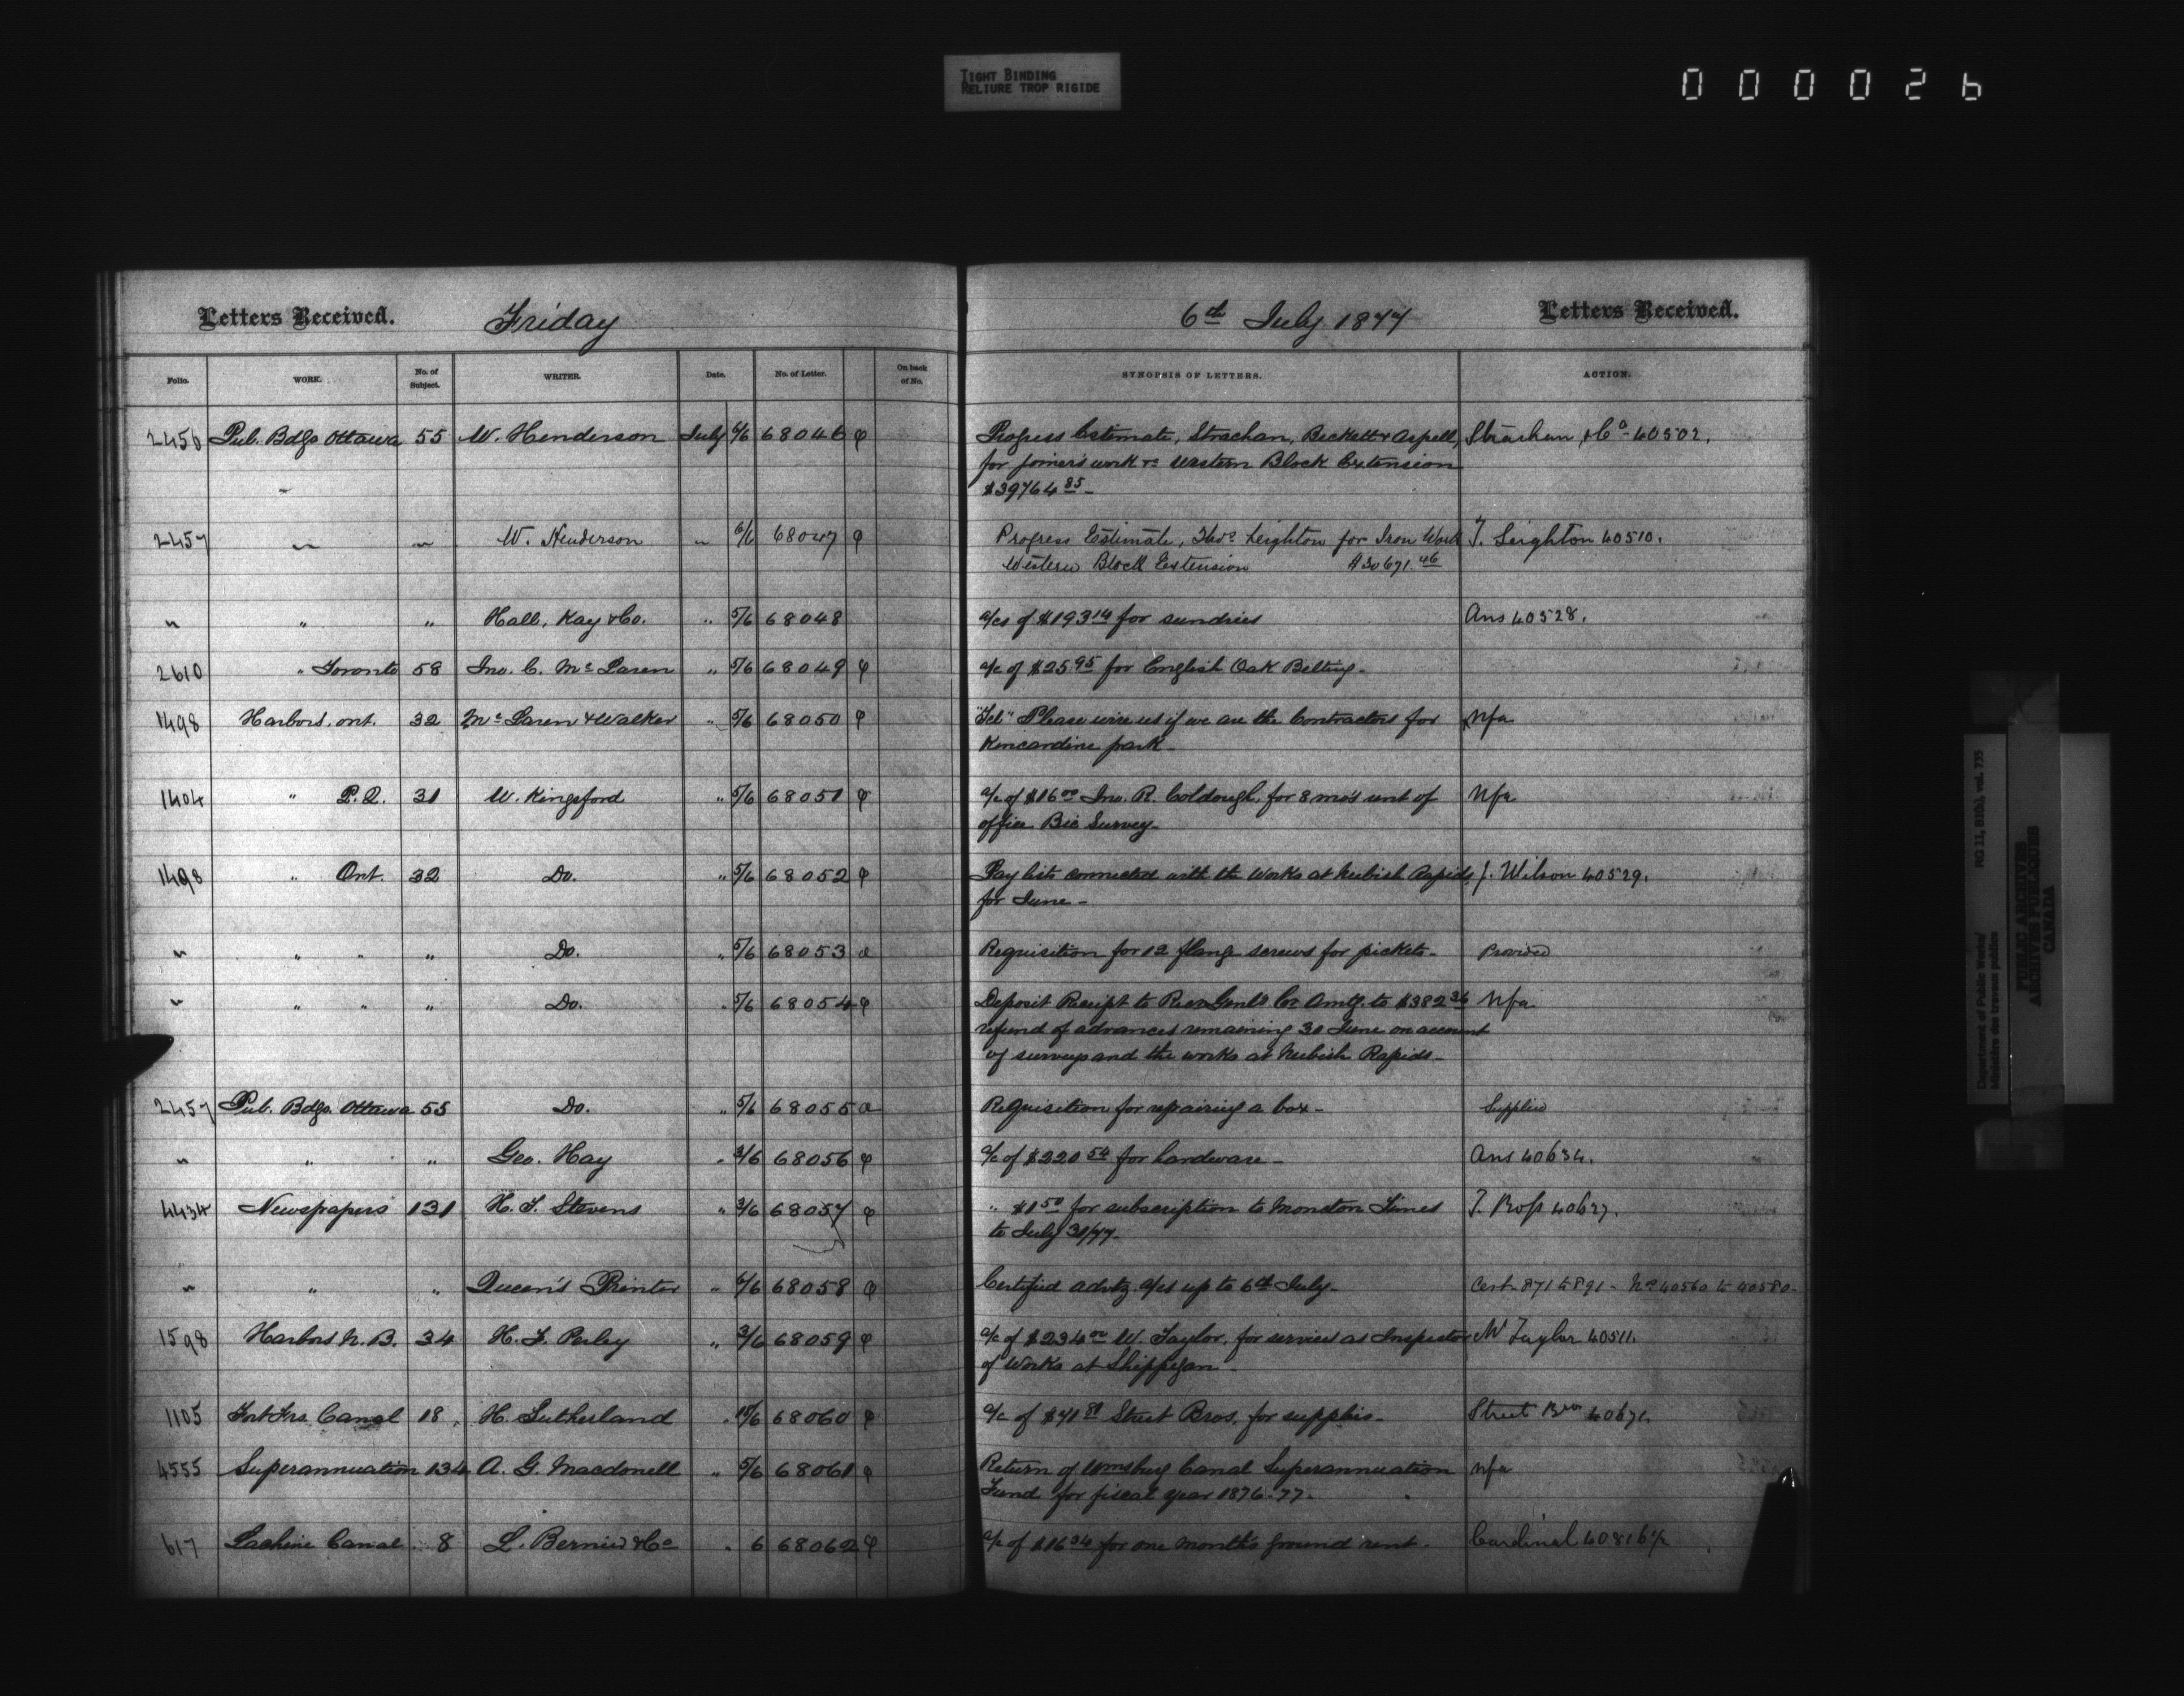 TIGHT BINDING
RELIURE TROP RIGIDE
000026
Letters Received. Friday 6th July 1877 Letters Received.
Folio. WORK. No. of Subject. WRITER. Date. No. of Letter. On back of No. SYNOPSIS OF LETTERS. ACTION.
2456 Pub. Bdgs Ottawa 55 W. Henderson July 6/6 68046 φ Progress Estimate, Strachan, Beckett & Aspell, Strachan & Co - 40502.
for joiners work re Western Block Extension
$39764 85 -
2457 " " W. Henderson " 6/6 68047 φ Progress Estimate, Thos Leighton for Iron Work T. Leighton 40510.
Western Block Extension $30671.46
" " " Hall, Kay & Co. " 5/6 68048 a/cs of $193 14 for sundries Ans 40528.
2610 " Toronto 58 Jno. C. McLaren " 5/6 68049 φ a/c of $25.95 for English Oak Belting -
1498 Harbors, ont. 32 McLaren & Walker " 5/6 68050 φ "Tel" Please wire us if we are the Contractors for Nfa
Kincardine park -
1404 " P.Q. 31 W. Kingsford " 5/6 68051 φ a/c of $16 00 Jno. R. for 8 mo's rent of Nfa
office Bic Survey -
1498 " Ont. 32 Do. " 5/6 68052 φ Pay lists connected with the Works at Neebish Rapids J. Wilson 40529.
for June -
" " " " Do. " 5/6 68053 a Requisition for 12 flange screws for pickets - Provided
" " " " Do. " 5/6 68054 φ Deposit Receipt to Recr Genls Cr Amtg. to $382 36 Nfa
refund of advances remaining 30 June on account
of surveys and the works at Neebish Rapids -
2457 Pub. Bdgs. Ottawa 55 Do. " 5/6 68055 a Requisition for repairing a box - Supplied
" " " Geo. Hay " 3/6 68056 φ a/c of $220 54 for hardware - Ans 40634.
4434 Newspapers 131 H. T. Stevens " 3/6 68057 φ " $1 50 for subscription to Moncton Times T. Ross 40627.
to July 31/77 -
" " " Queen's Printer " 6/6 68058 φ Certified advtg a/cs up to 6th July - Cert. 871 to 891 - Nos 40560 to 40580 -
1598 Harbors N.B. 34 H. F. Perley " 3/6 68059 φ a/c of $234 00 W. Taylor, for services as Inspector W Taylor 40511.
of Works at Shippegan -
1105 Fort Frs. Canal 18 H. Sutherland " 68060 φ a/c of $41 Street Bros. for supplies - Street Bros 40671.
4555 Superannuation 134 A. G. Macdonell " 5/6 68061 φ Return of Wmsburg Canal Superannuation nfa
Fund for fiscal year 1876-77.
617 Lachine Canal 8 L. & Co " 6 68062 φ a/c of $16 34 for one month's ground rent - Cardinal 40816 1/2
Department of Public Works/ RG 11, B1(b), vol. 735
Ministère des travaux publics
PUBLIC ARCHIVES
ARCHIVES PUBLIQUES
CANADA